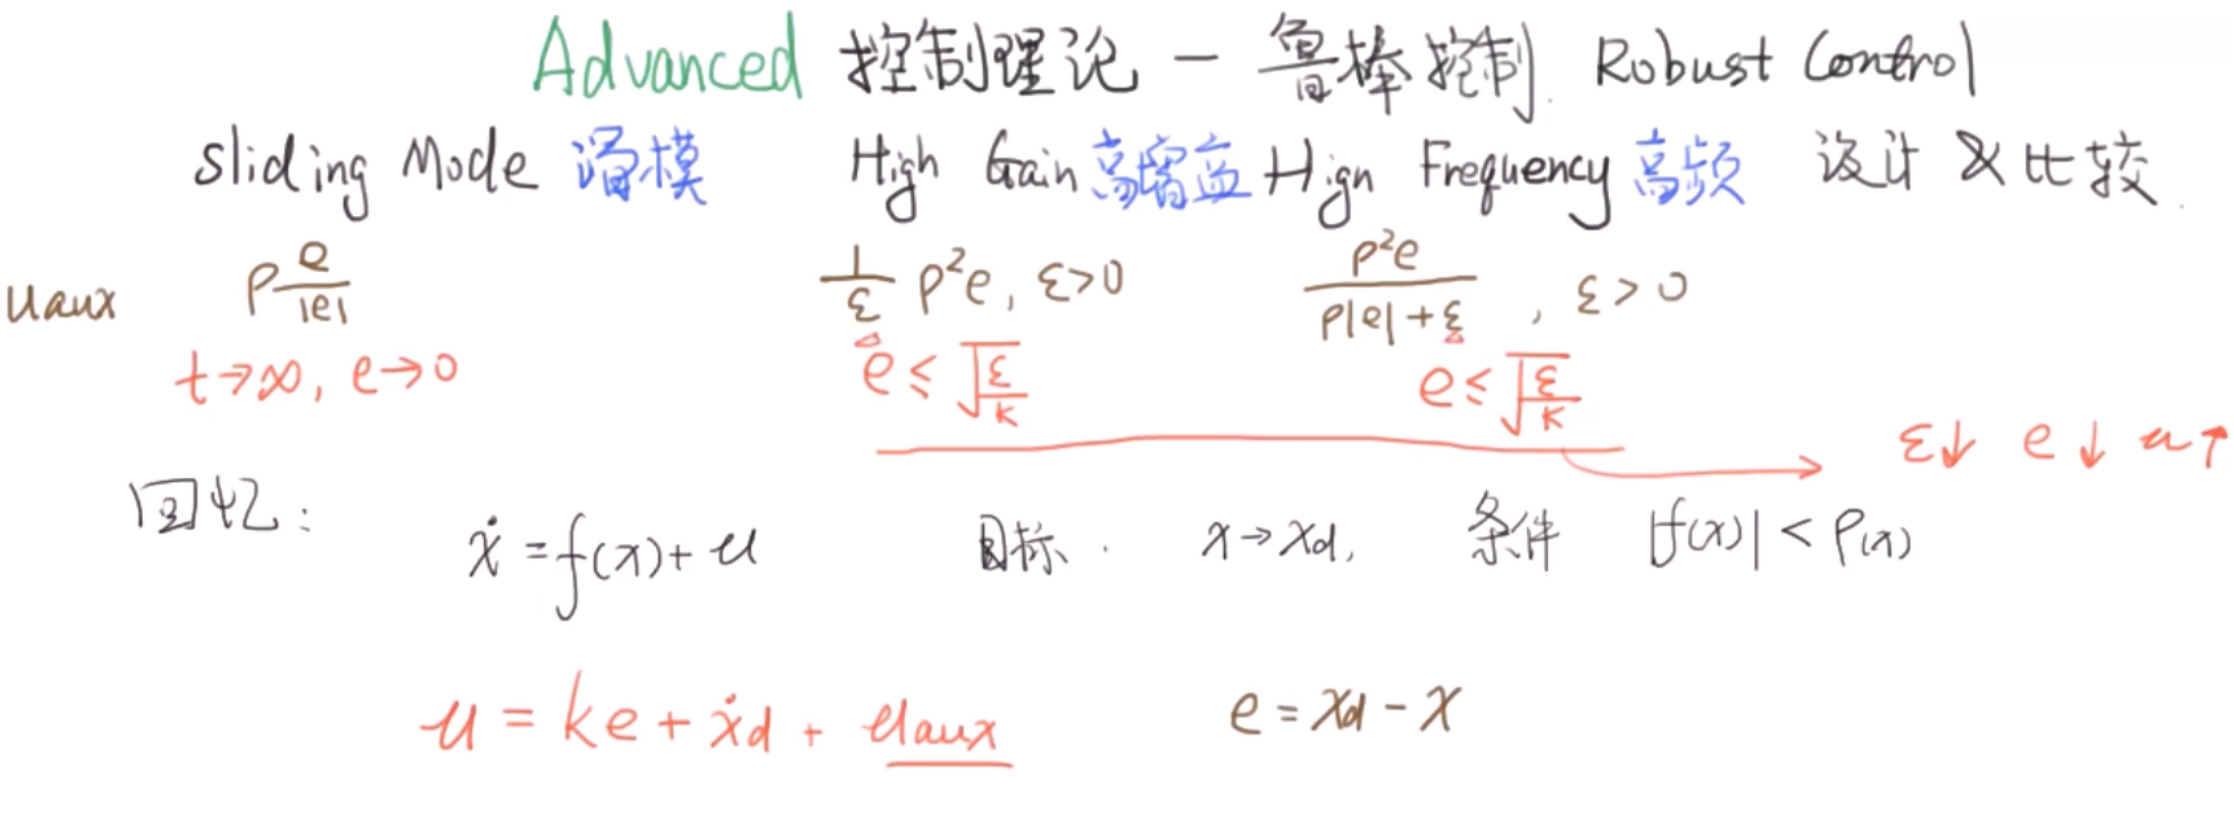 Advanced 控制理论 - 鲁棒控制. Robust Control
Sliding Mode 滑模 High Gain 高增益 Hign Frequency 高频 设计 & 比较.
uaux ρ e/|e| 1/ε ρ²e, ε>0 ρ²e/(ρ|e|+ε), ε>0
t→∞, e→0 e ≤ √(ε/k) e ≤ √(ε/k)
ε↓ e↓ u↑
回忆: ẋ = f(x) + u 目标. x→xd, 条件 |f(x)| < ρ(x)
u = ke + ẋd + uaux e = xd - x